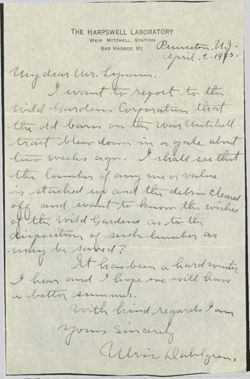 THE HARPSWELL LABORATORY
WEIR MITCHELL STATION
BAR HARBOR, ME.
Princeton, N.J.
April 2, 1923.
My dear Mr. Lynam:
I want to report to the
Wild Gardens Corporation that
the old barn on the Weir Mitchell
tract blew down in a gale about
two weeks ago. I shall see that
the lumber of any value
is stacked up and the debris cleared
off and want to know the wishes
of the Wild Gardens as to the
disposition of such lumber as
may be saved?
It has been a hard winter
I hear and I hope we will have
a better summer.
With kind regards I am
Yours Sincerely
Ulric Dahlgren.